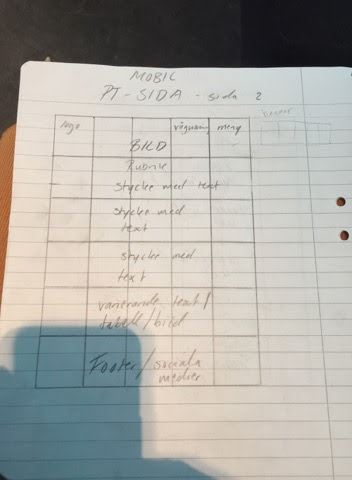 MOBIL
PT-SIDA - sida 2
logo meny
BILD
Rubrik
Stycke med text
Stycke med
text
stycke med
text
varierande text/
tabell/bild
Footer/sociala
medier